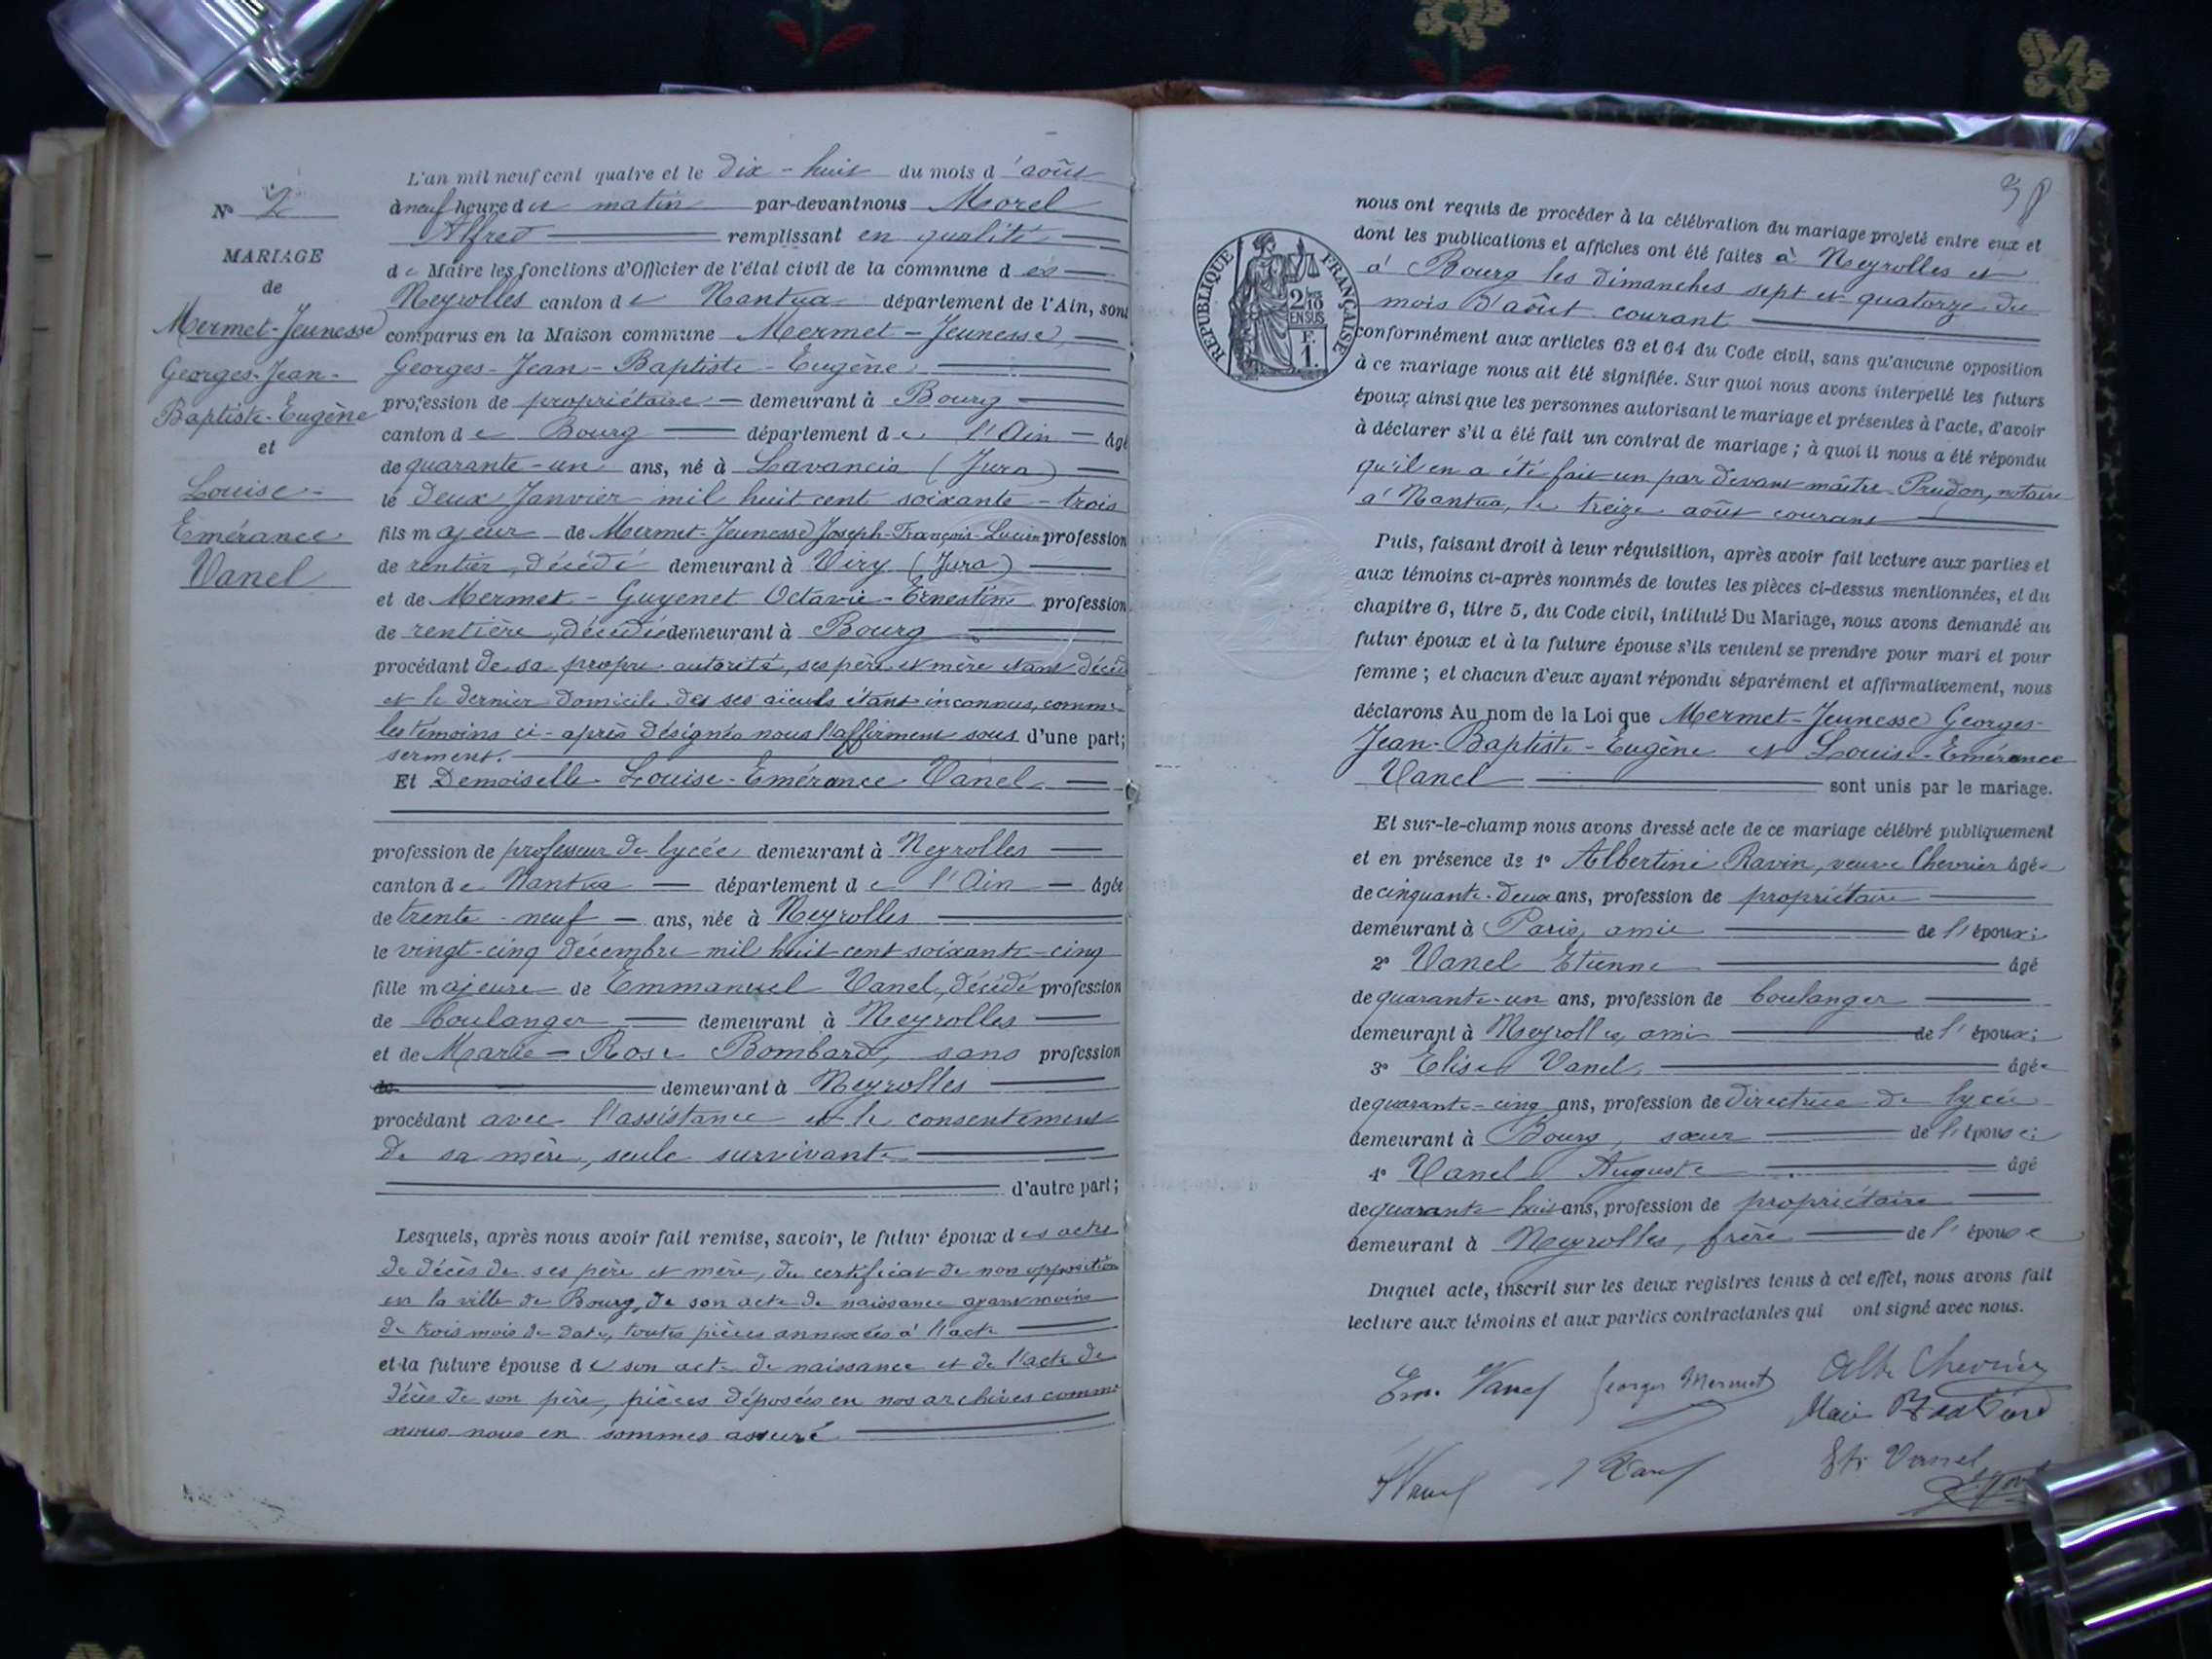 L'an mil neuf cent quatre et le dix-huit du mois d'août
à neuf heures du matin par-devant nous Morel
Alfred remplissant en qualité
de Maire les fonctions d'Officier de l'état civil de la commune d es
Neyrolles canton de Nantua département de l'Ain, sont
comparus en la Maison commune Mermet-Jeunesse
Georges-Jean-Baptiste-Eugène
profession de propriétaire demeurant à Bourg
canton de Bourg département de l'Ain âgé
de quarante-un ans, né à Lavancia (Jura)
le deux Janvier mil huit cent soixante-trois
fils majeur de Mermet-Jeunesse Joseph-François-Lucien profession
de rentier, décédé demeurant à Viry (Jura)
et de Mermet-Guyenet Octavie-Ernestine profession
de rentière, décédée demeurant à Bourg
procédant de sa propre autorité, ses père et mère étant décédés
et le dernier domicile des ses aïeuls étant inconnus, comme
les témoins ci-après désignés nous l'affirment sous d'une part;
serment.
Et Demoiselle Louise-Emérance Vanel
profession de professeur de lycée demeurant à Neyrolles
canton de Nantua département de l'Ain âgée
de trente-neuf ans, née à Neyrolles
le vingt-cinq décembre mil huit cent soixante-cinq
fille majeure de Emmanuel Vanel, décédé profession
de boulanger demeurant à Neyrolles
et de Marie-Rose Bombard, sans profession
de demeurant à Neyrolles
procédant avec l'assistance et le consentement
de sa mère, seule survivante
d'autre part;
Lesquels, après nous avoir fait remise, savoir, le futur époux des actes
de décès de ses père et mère, du certificat de non opposition
en la ville de Bourg, de son acte de naissance ayant moins
de trois mois de date, toutes pièces annexées à l'acte
et la future épouse de son acte de naissance et de l'acte de
décès de son père, pièces déposées en nos archives comme
nous nous en sommes assuré
N° 2
MARIAGE
de
Mermet-Jeunesse
Georges-Jean-
Baptiste-Eugène
et
Louise-
Emérance
Vanel
38
nous ont requis de procéder à la célébration du mariage projeté entre eux et
dont les publications et affiches ont été faites à Neyrolles et
à Bourg les dimanches sept et quatorze du
mois d'août courant
conformément aux articles 63 et 64 du Code civil, sans qu'aucune opposition
à ce mariage nous ait été signifiée. Sur quoi nous avons interpellé les futurs
époux ainsi que les personnes autorisant le mariage et présentes à l'acte, d'avoir
à déclarer s'il a été fait un contrat de mariage; à quoi il nous a été répondu
qu'il en a été fait un par devant maître Prudon, notaire
à Nantua, le treize août courant
Puis, faisant droit à leur réquisition, après avoir fait lecture aux parties et
aux témoins ci-après nommés de toutes les pièces ci-dessus mentionnées, et du
chapitre 6, titre 5, du Code civil, intitulé Du Mariage, nous avons demandé au
futur époux et à la future épouse s'ils veulent se prendre pour mari et pour
femme; et chacun d'eux ayant répondu séparément et affirmativement, nous
déclarons Au nom de la Loi que Mermet-Jeunesse Georges-
Jean-Baptiste-Eugène et Louise-Emérance
Vanel sont unis par le mariage.
Et sur-le-champ nous avons dressé acte de ce mariage célébré publiquement
et en présence de 1° Albertine Ravin, veuve Chevrier âgée
de cinquante-deux ans, profession de propriétaire
demeurant à Paris, amie de l'époux;
2° Vanel Etienne âgé
de quarante-un ans, profession de boulanger
demeurant à Neyrolles, ami de l'époux;
3° Elise Vanel âgée
de quarante-cinq ans, profession de directrice de lycée
demeurant à Bourg, sœur de l'épouse;
4° Vanel Auguste âgé
de quarante huit ans, profession de propriétaire
demeurant à Neyrolles, frère de l'épouse
Duquel acte, inscrit sur les deux registres tenus à cet effet, nous avons fait
lecture aux témoins et aux parties contractantes qui ont signé avec nous.
Em. Vanel Georges Mermet Alb. Chevrier
Marie Bombard
Vanel Vanel Et. Vanel
RÉPUBLIQUE FRANÇAISE
2/10
EN SUS
F.
1.